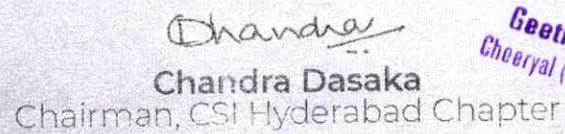 Chandra
Geet
Cheeryal (
Chandra Dasaka
Chairman, CSI Hyderabad Chapter